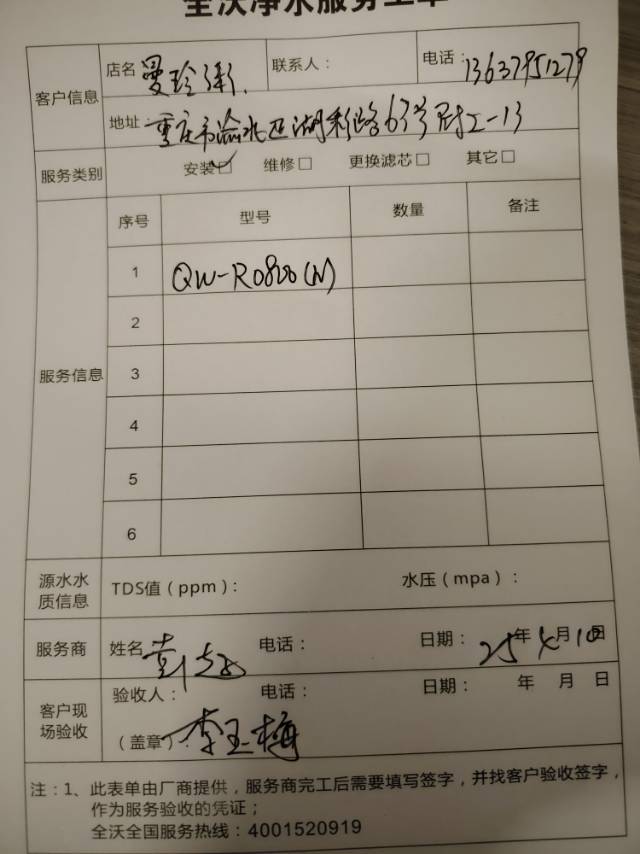 全沃净水服务工单
客户信息 店名 曼玲粥. 联系人： 电话：13637951279
地址：重庆市渝北区湖彩路63号附2-13
服务类别 安装☑ 维修□ 更换滤芯□ 其它□
服务信息 序号 型号 数量 备注
1 QW-R0800(N)
2
3
4
5
6
源水水质信息 TDS值（ppm）： 水压（mpa）：
服务商 姓名 电话： 日期：25年4月10日
客户现场验收 验收人： 电话： 日期： 年 月 日
（盖章） 李玉梅
注：1、此表单由厂商提供，服务商完工后需要填写签字，并找客户验收签字，
作为服务验收的凭证；
全沃全国服务热线：4001520919